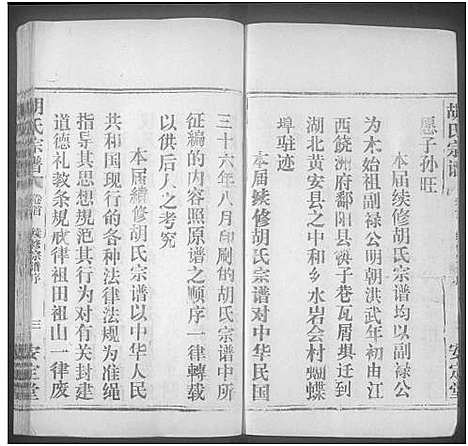 胡氏宗谱
安定堂
愿子孙旺
本届续修胡氏宗谱均以副禄公
为木始祖副禄公明朝洪武年初由江
西饶洲府鄱阳县筷子巷瓦屑埧迁到
湖北黄安县之中和乡水岩会村蝴蝶
埠驻迹
本届续修胡氏宗谱对中华民国
三十六年八月印刷的胡氏宗谱中所
征编的内容照原谱之顺序一律轉载
以供后人之考究
本届續修胡氏宗谱以中华人民
共和国现行的各种法律法规为准绳
指导其思想规范其行为对有关封建
道德礼教条规戒律祖田祖山一律废
胡氏宗谱
卷首
续修宗谱序
三
安定堂